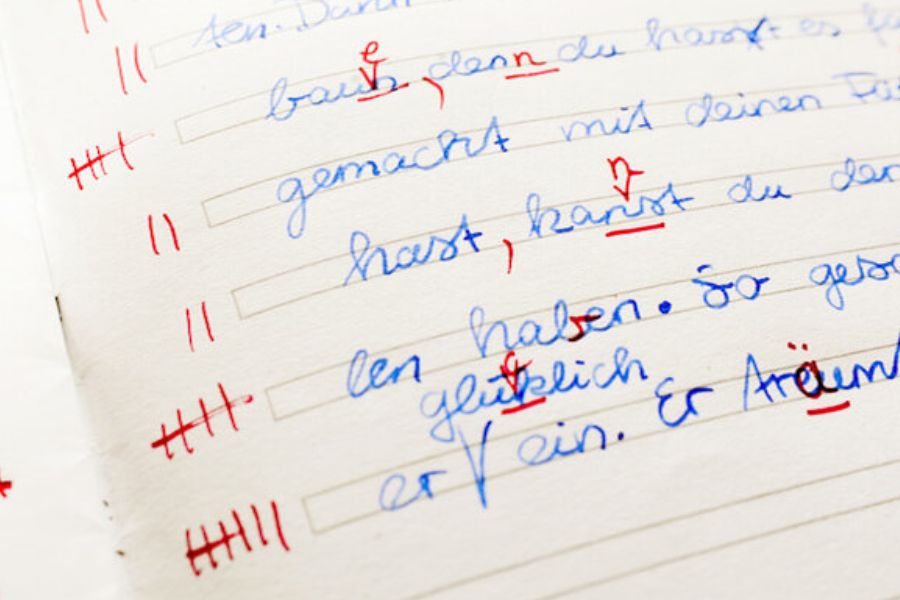 ten. Dann
bauen, denn du hast es
gemacht mit deinen
hast, kannst du
len haben. So
glücklich
er ein. Er träum